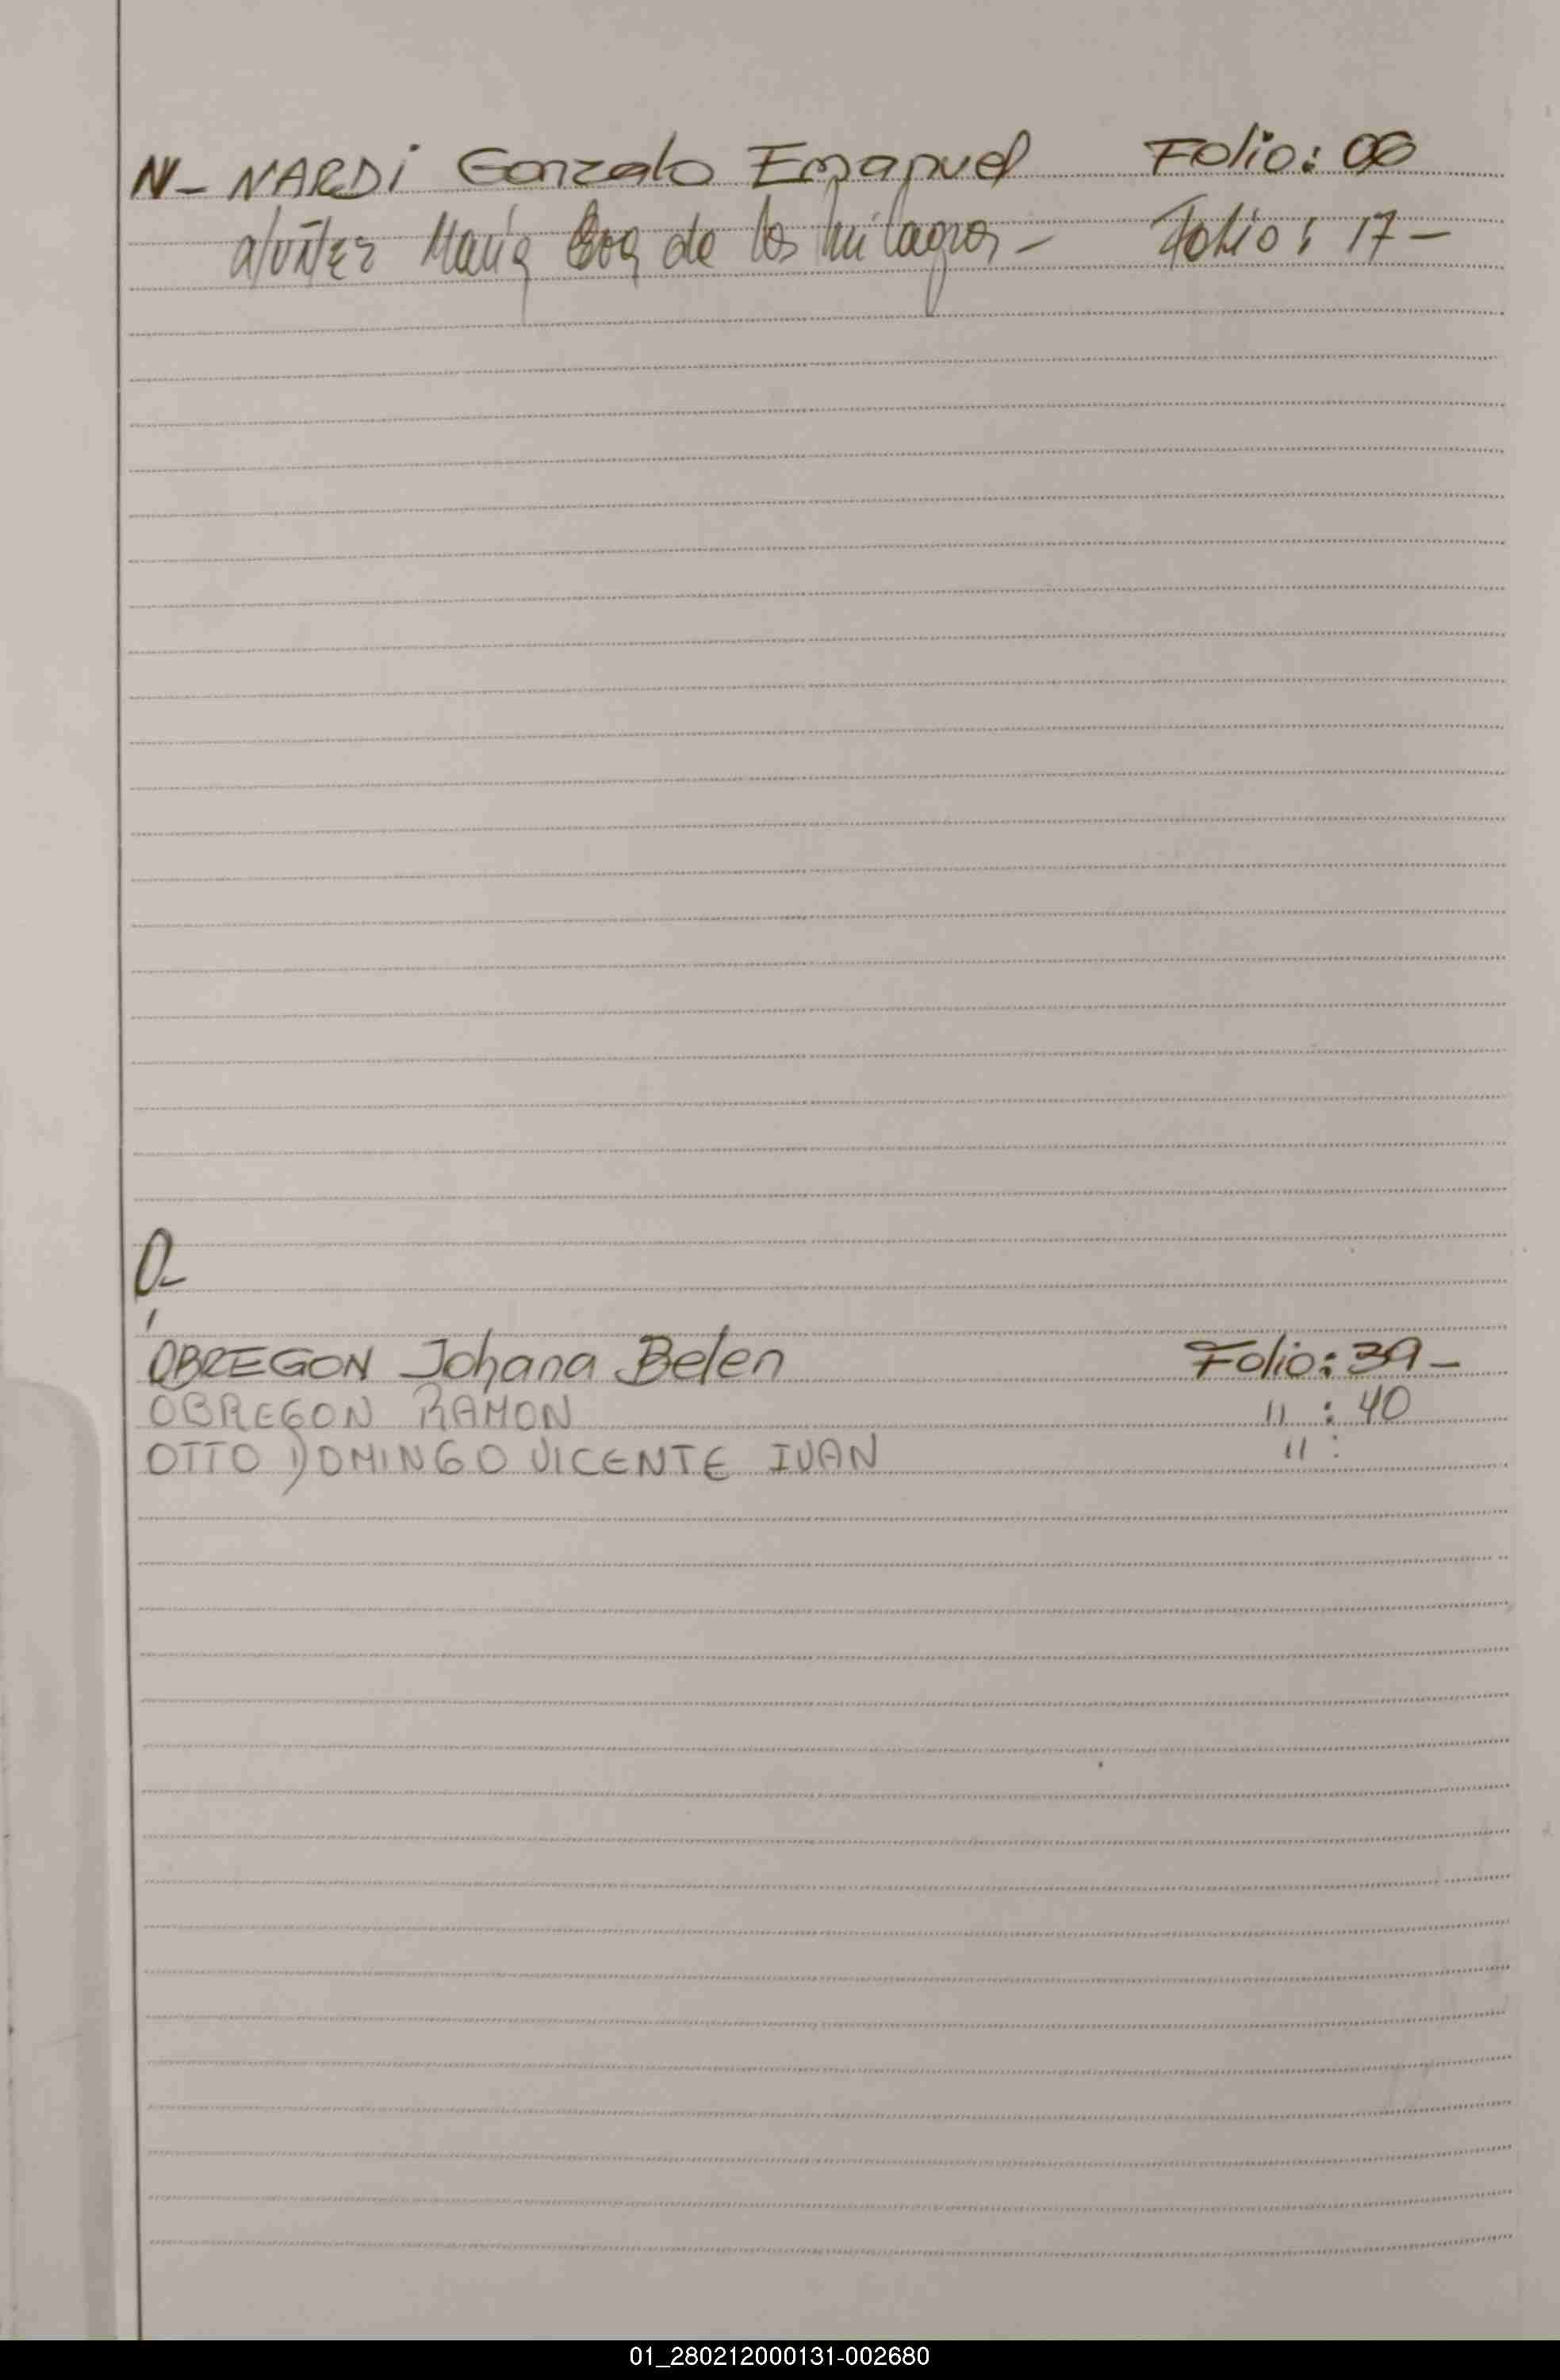 N- NARDi Gonzalo Emanuel Folio: 06
Nuñez María de los milagros - Folio: 17-
O-
OBREGON Johana Belen Folio: 39-
OBREGON RAMON " : 40
OTTO DOMINGO VICENTE IVAN " :
01_280212000131-002680